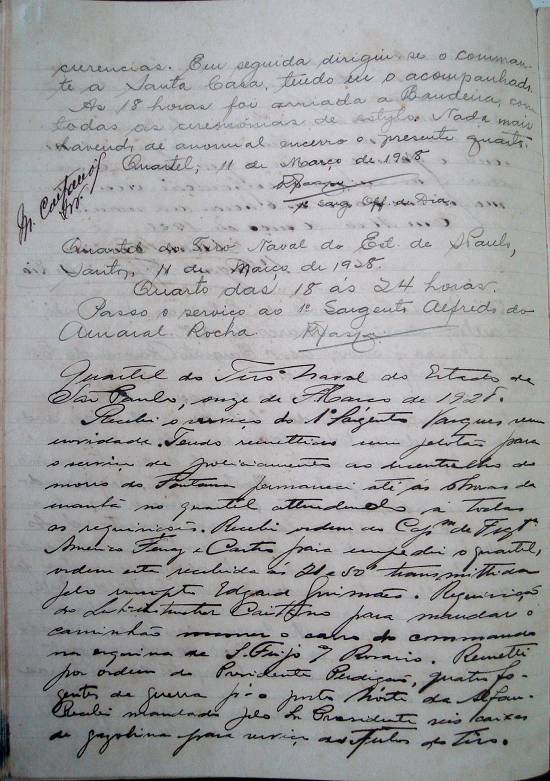 currencias. Em seguida dirigiu se o comman-
te a Santa Casa, tendo eu o acompanhado.
As 18 horas foi arriada a Bandeira, com
todas as ceremonias de estylo. Nada mais
havendo de anormal encerro o presente quarto.
Quartel, 11 de Março de 1928
1º Sarg. Off. de Dia
M. Caetano
Quartel do Tiro Naval do Est. de S. Paulo,
Santos, 11 de Março de 1928.
Quarto das 18 ás 24 horas.
Passo o serviço ao 1º Sargento Alfredo do
Amaral Rocha
Quartel do Tiro Naval do Estado de
São Paulo, onze de Março de 1928.
Recebi o serviço do 1º Sargento Vasques sem
novidade. Tendo remettido um pelotão para
o serviço de policiamento ao do
morro do Fontana permaneci até ás 6 horas da
manhã no quartel attendendo a todas
as requisições. Recebi ordem do Capm. de Fragta.
Americo e Castro para o quartel,
ordem esta recebida ás 21 e 50 transmittida
pelo Edgard Guimarães. Requisição
do Caetano para mandar o
caminhão o carro do commando
na esquina de S. Feijó Rosario. Remetti
por ordem do Presidente Perdigão, quatro fo-
guetes de guerra p. o posto Norte da Alfan.
Recebi mandado pelo Sr. Presidente seis caixas
de gazolina para do Tiro.